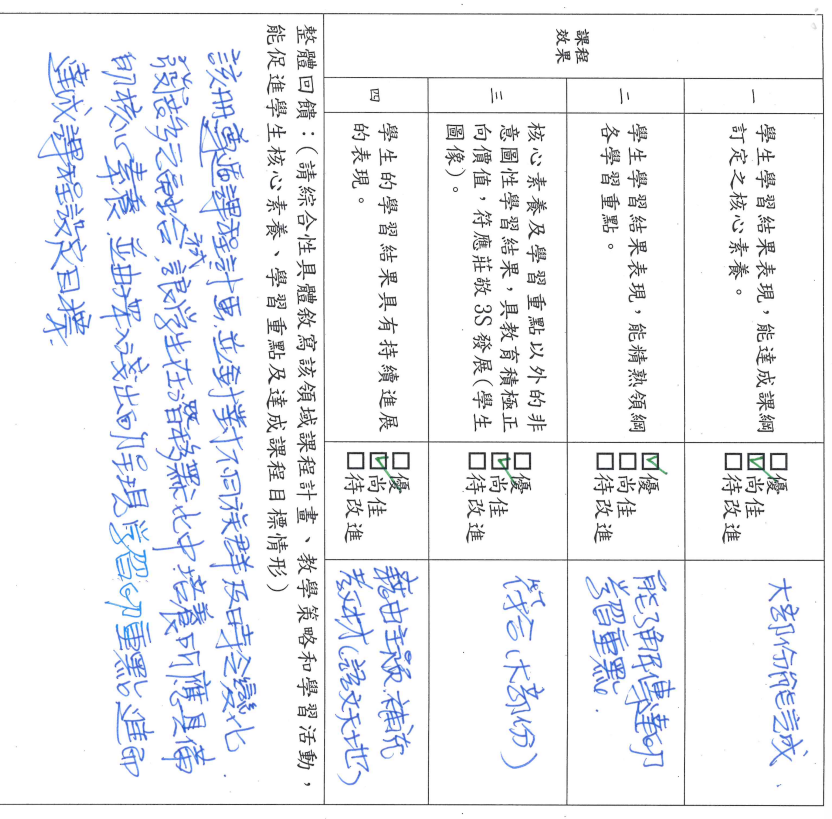 課程
效果
一
學生學習結果表現，能達成課綱
訂定之核心素養。
□優
☑尚佳
□待改進
大部份能完成.
二
學生學習結果表現，能精熟領綱
各學習重點。
☑優
□尚佳
□待改進
能了解傳達的
學習重點.
三
核心素養及學習重點以外的非
意圖性學習結果，具教育積極正
向價值，符應莊敬 3S 發展(學生
圖像)。
□優
☑尚佳
□待改進
符合(大部份)
四
學生的學習結果具有持續進展
的表現。
□優
☑尚佳
□待改進
藉由主題.補充
教材(語文天地)
整體回饋：(請綜合性具體敘寫該領域課程計畫、教學策略和學習活動，
能促進學生核心素養、學習重點及達成課程目標情形)
該冊 課程計畫,並針對不同族群及時令變化.
融合.試讓學生在潛移默化中培養所應具備
的核心素養.並由深入淺出的呈現學習的重點.進而
達成課程設定目標.